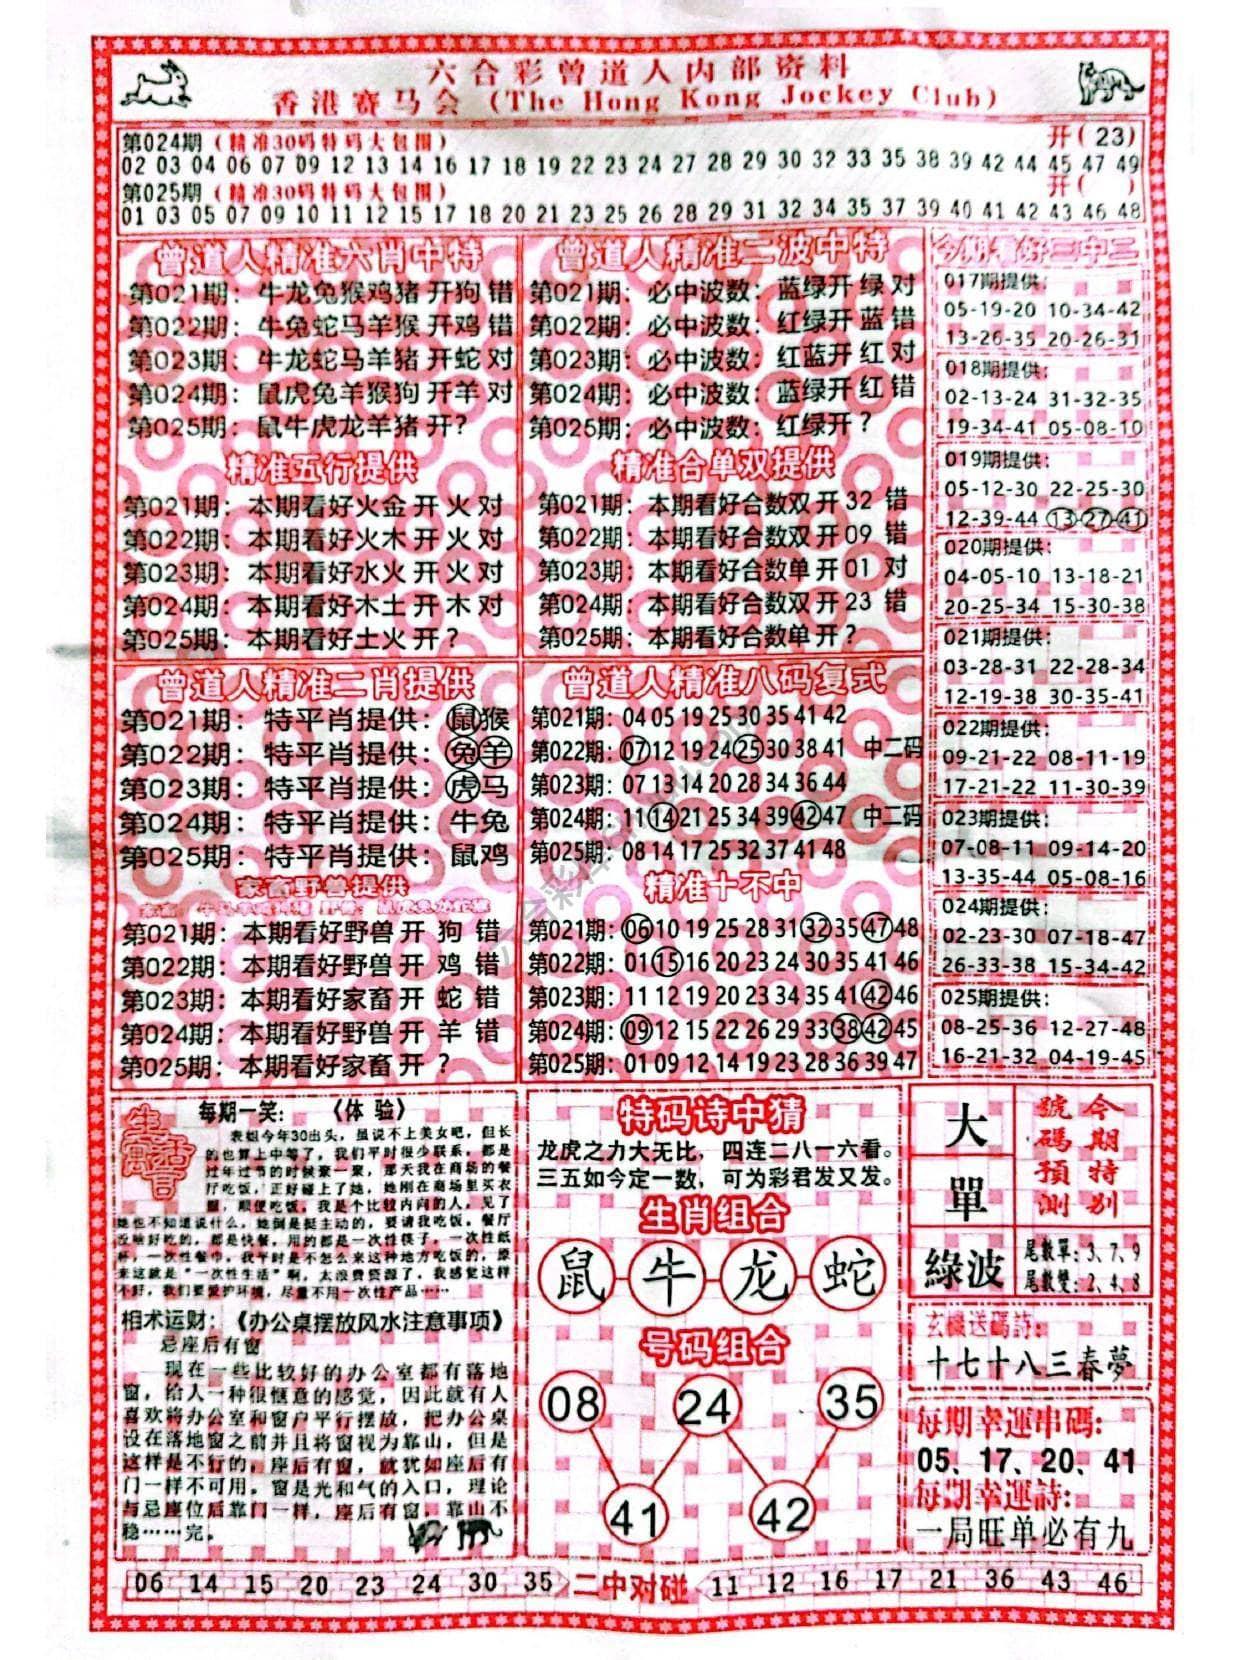 六合彩曾道人内部资料
香港赛马会 (The Hong Kong Jockey Club)
第024期(精准30码特码大包围) 开(23)
02 03 04 06 07 09 12 13 14 16 17 18 19 22 23 24 27 28 29 30 32 33 35 38 39 42 44 45 47 49
第025期(精准30码特码大包围) 开( )
01 03 05 07 09 10 11 12 15 17 18 20 21 23 25 26 28 29 31 32 34 35 37 39 40 41 42 43 46 48
曾道人精准六肖中特
第021期：牛龙兔猴鸡猪开狗错
第022期：牛兔蛇马羊猴开鸡错
第023期：牛龙蛇马羊猪开蛇对
第024期：鼠虎兔羊猴狗开羊对
第025期：鼠牛虎龙羊猪开？
精准五行提供
第021期：本期看好火金开火对
第022期：本期看好火木开火对
第023期：本期看好水火开火对
第024期：本期看好木土开木对
第025期：本期看好土火开？
曾道人精准二波中特
第021期：必中波数：蓝绿开绿对
第022期：必中波数：红绿开蓝错
第023期：必中波数：红蓝开红对
第024期：必中波数：蓝绿开红错
第025期：必中波数：红绿开？
精准合单双提供
第021期：本期看好合数双开32错
第022期：本期看好合数双开09错
第023期：本期看好合数单开01对
第024期：本期看好合数双开23错
第025期：本期看好合数单开？
今期看好三中二
017期提供：
05-19-20 10-34-42
13-26-35 20-26-31
018期提供：
02-13-24 31-32-35
19-34-41 05-08-10
019期提供：
05-12-30 22-25-30
12-39-44 13-27-41
020期提供：
04-05-10 13-18-21
20-25-34 15-30-38
021期提供：
03-28-31 22-28-34
12-19-38 30-35-41
022期提供：
09-21-22 08-11-19
17-21-22 11-30-39
023期提供：
07-08-11 09-14-20
13-35-44 05-08-16
024期提供：
02-23-30 07-18-47
26-33-38 15-34-42
025期提供：
08-25-36 12-27-48
16-21-32 04-19-45
曾道人精准二肖提供
第021期：特平肖提供：鼠猴
第022期：特平肖提供：兔羊
第023期：特平肖提供：虎马
第024期：特平肖提供：牛兔
第025期：特平肖提供：鼠鸡
家畜野兽提供
第021期：本期看好野兽开 狗 错
第022期：本期看好野兽开 鸡 错
第023期：本期看好家畜开 蛇 错
第024期：本期看好野兽开 羊 错
第025期：本期看好家畜开 ？
曾道人精准八码复式
第021期：04 05 19 25 30 35 41 42
第022期：07 12 19 24 25 30 38 41 中二码
第023期：07 13 14 20 28 34 36 44
第024期：11 14 21 25 34 39 42 47 中二码
第025期：08 14 17 25 32 37 41 48
精准十不中
第021期：06 10 19 25 28 31 32 35 47 48
第022期：01 15 16 20 23 24 30 35 41 46
第023期：11 12 19 20 23 34 35 41 42 46
第024期：09 12 15 22 26 29 33 38 42 45
第025期：01 09 12 14 19 23 28 36 39 47
生活寓言
每期一笑：《体验》
表姐今年30出头，虽说不上美女吧，但长
的也算上中等了，我们平时很少联系，都是
过年过节的时候聚一聚，那天我在商场的餐
厅吃饭，正好碰上了她，她刚在商场里买衣
服，顺便吃饭。我是个比较内向的人，见了
她也不知道说什么，她倒是挺主动的，要请我吃饭。餐厅
没啥好吃的，都是快餐，用的都是一次性筷子，一次性纸
杯，一次性餐巾，我平时是不怎么来这种地方吃饭的，原
来这就是“一次性生活”啊，太浪费资源了，我感觉这样
不好，我们要爱护环境，尽量不用一次性产品……
相术运财：《办公桌摆放风水注意事项》
忌座后有窗
现在一些比较好的办公室都有落地
窗，给人一种很惬意的感觉，因此就有人
喜欢将办公室和窗户平行摆放，把办公桌
设在落地窗之前并且将窗视为靠山，但是
这样是不行的，座后有窗，就犹如座后有
门一样不可用。窗是光和气的入口，理论
与忌座位后靠门一样，座后有窗，靠山不
稳……完。
特码诗中猜
龙虎之力大无比，四连二八一六看。
三五如今定一数，可为彩君发又发。
生肖组合
鼠 牛 龙 蛇
号码组合
08 24 35
41 42
今期特别號碼預測
大
單
綠波
尾數單：3、7、9
尾數雙：2、4、8
玄機送碼詩：
十七十八三春夢
每期幸運串碼：
05、17、20、41
每期幸運詩：
一局旺单必有九
06 14 15 20 23 24 30 35 二中对碰 11 12 16 17 21 36 43 46